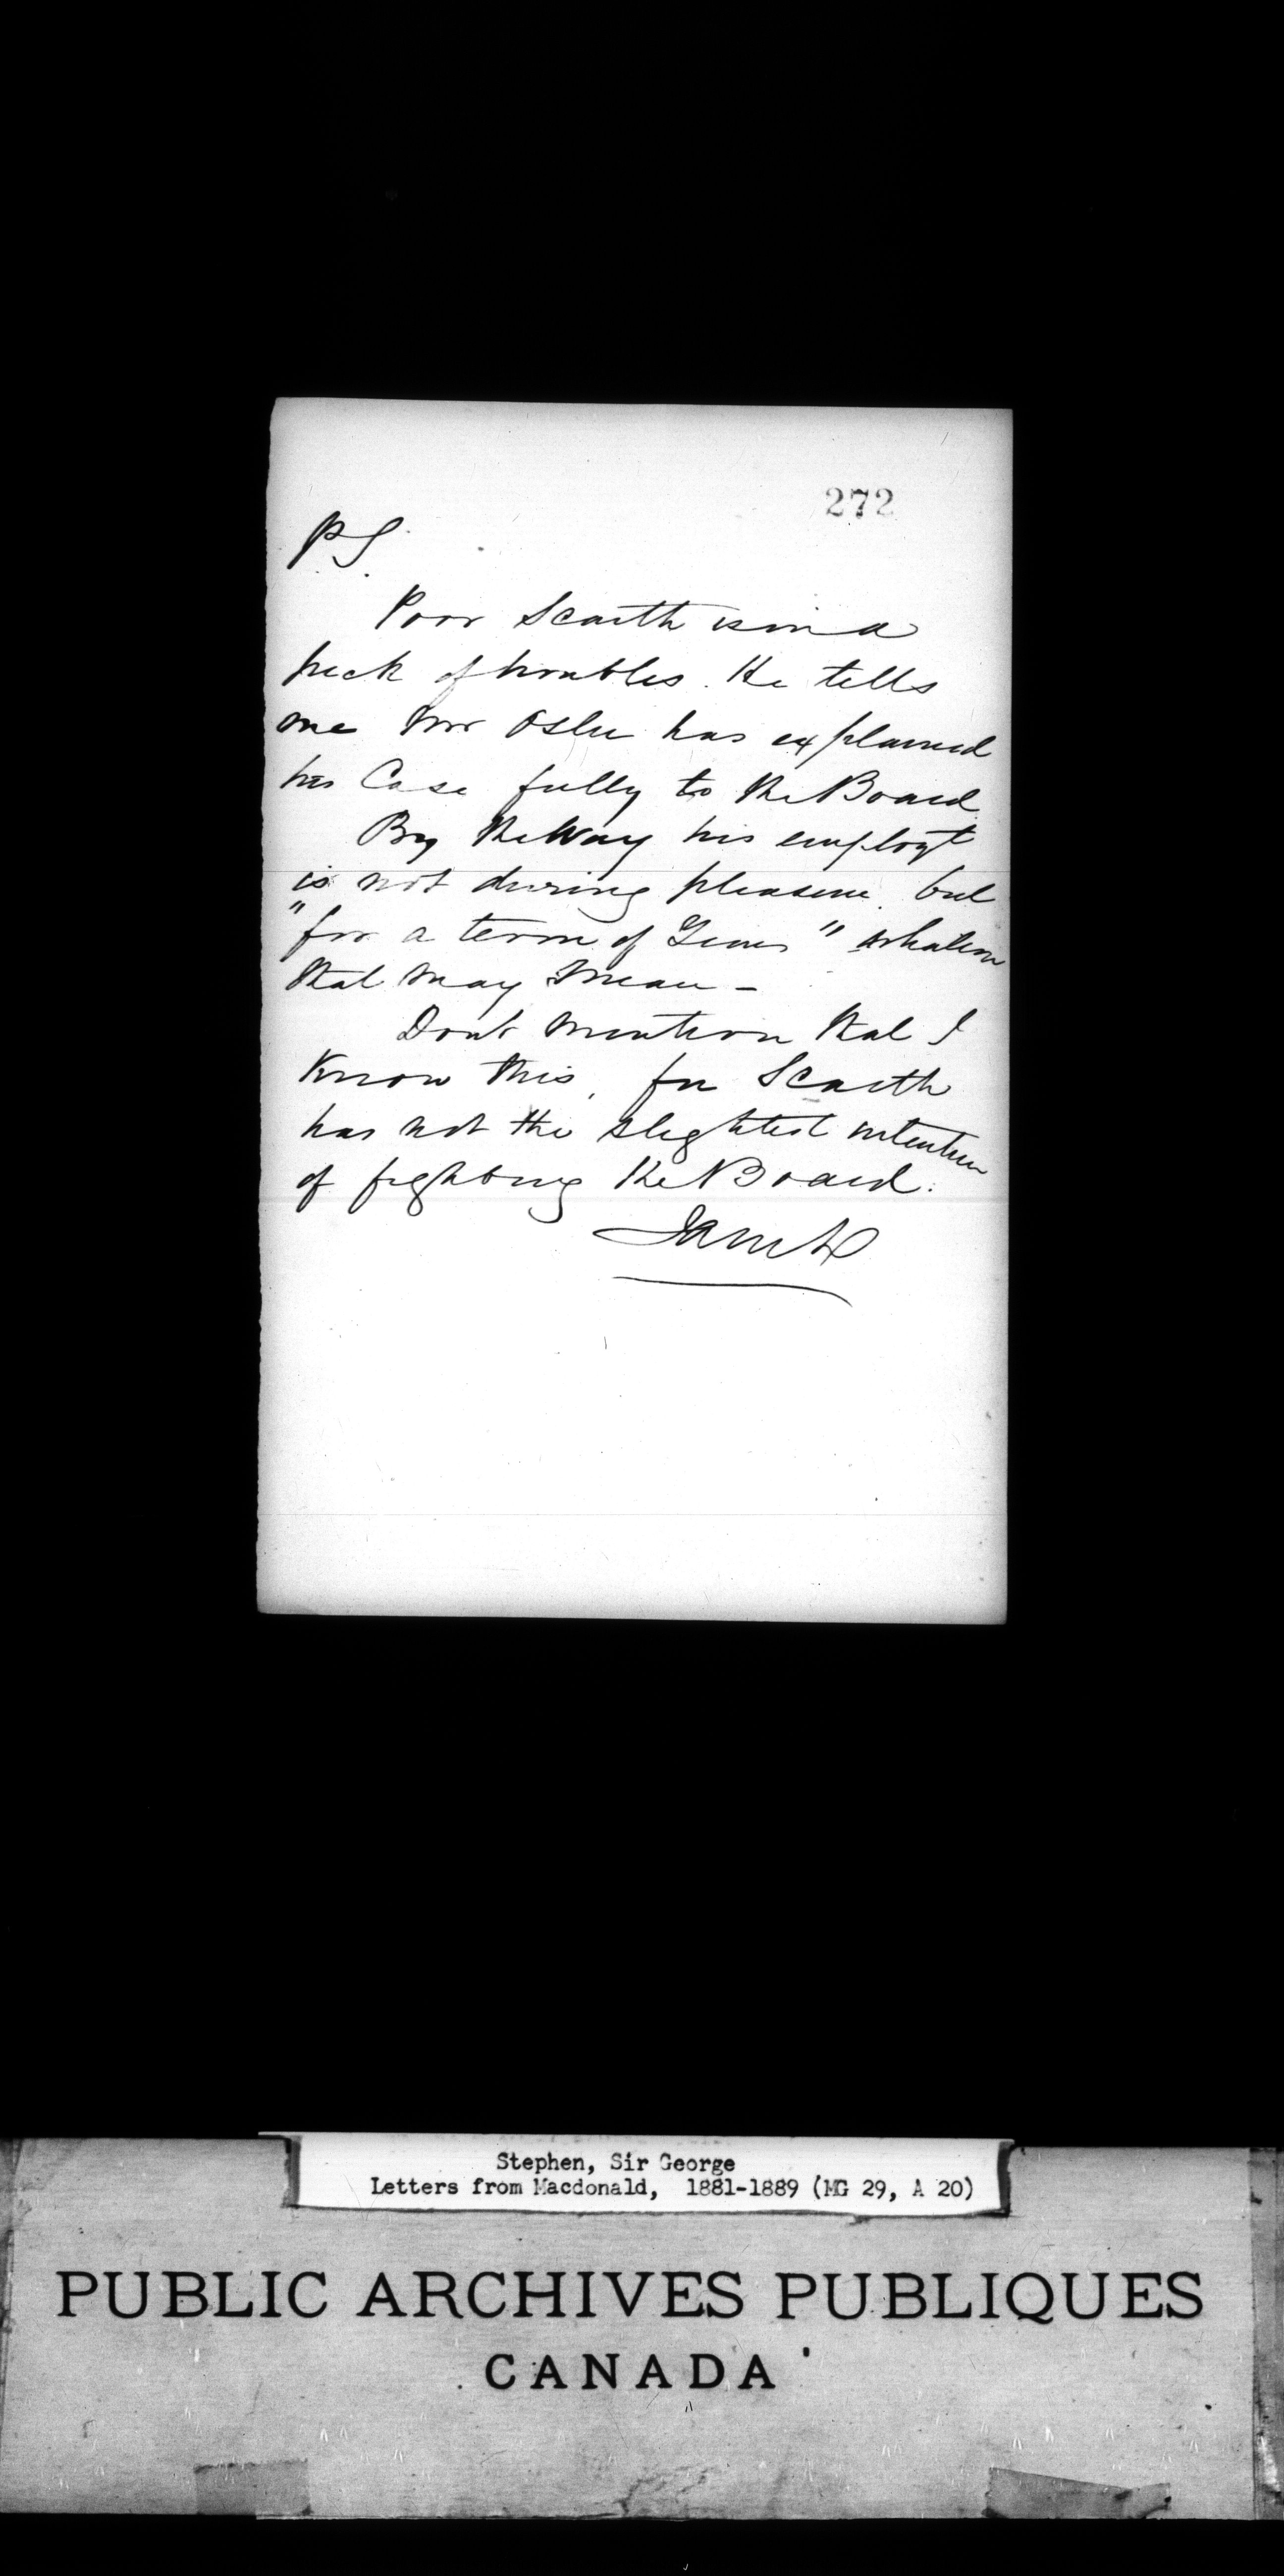 272
PS.
Poor Scarth is in a
peck of troubles. He tells
me Mr Osler has explained
his Case fully to the Board
By the Way his employt
is not during pleasure. but
"for a term of Years" whatever
that may mean -
Dont mention that I
know this, for Scarth
has not the slightest intention
of fighting the Board.
JAMcD
Stephen, Sir George
Letters from Macdonald, 1881-1889 (MG 29, A 20)
PUBLIC ARCHIVES PUBLIQUES
CANADA